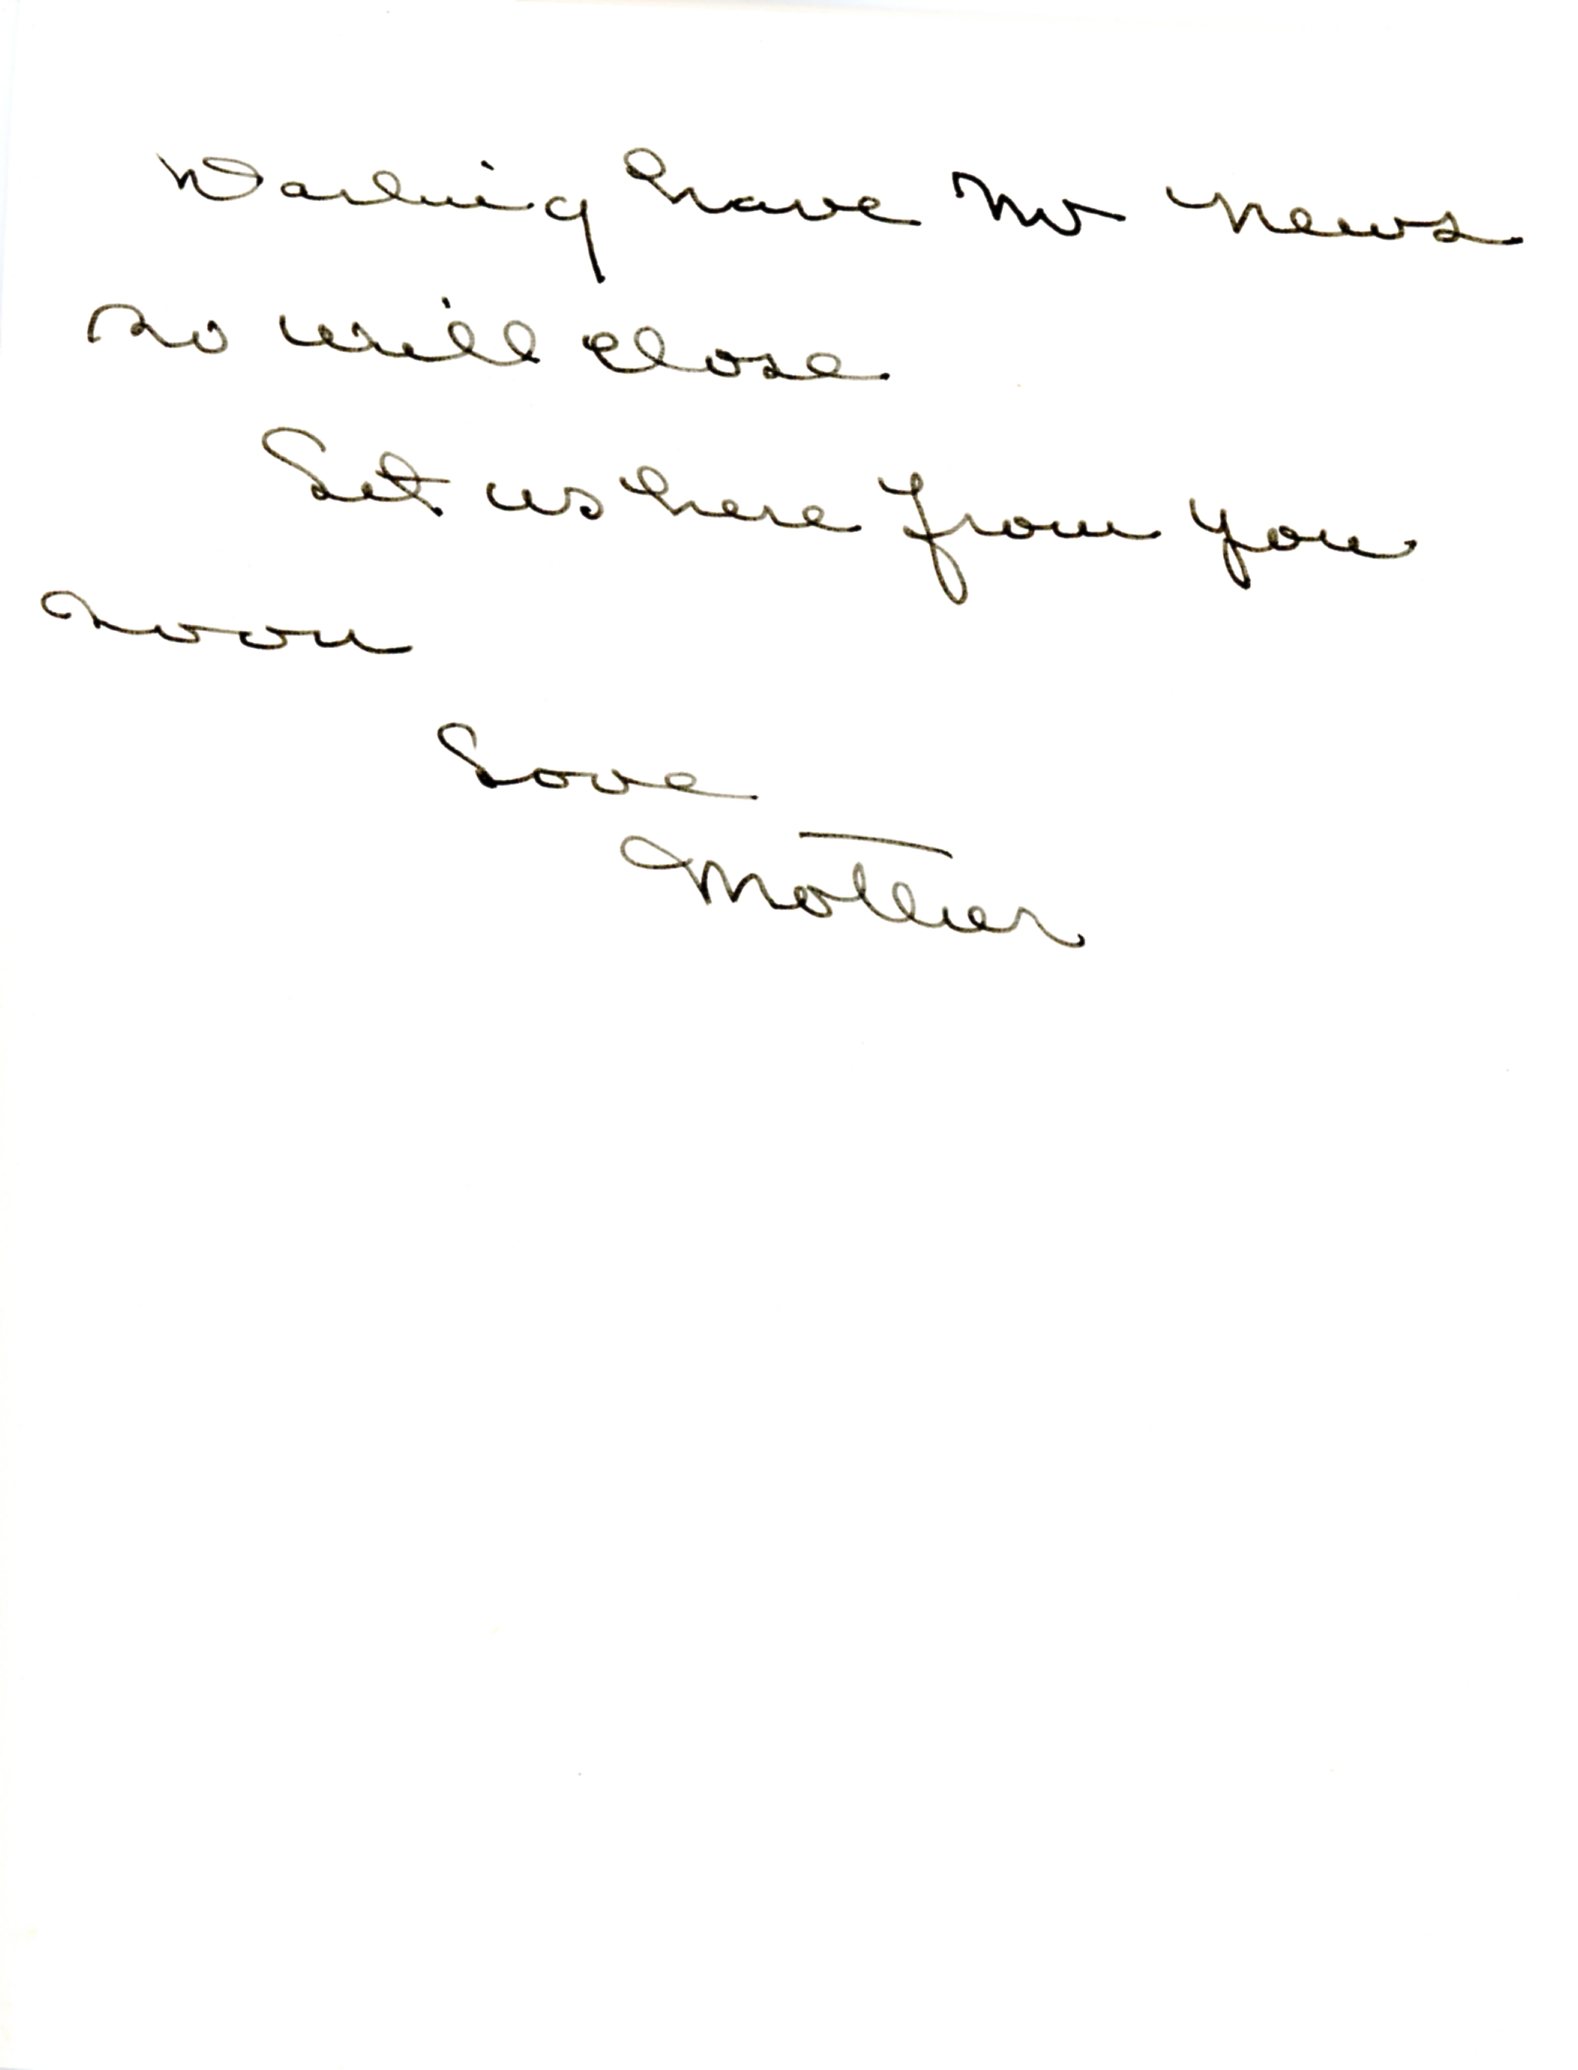 Darling have no news
so will close
Let us here from you
soon
Love
Mother